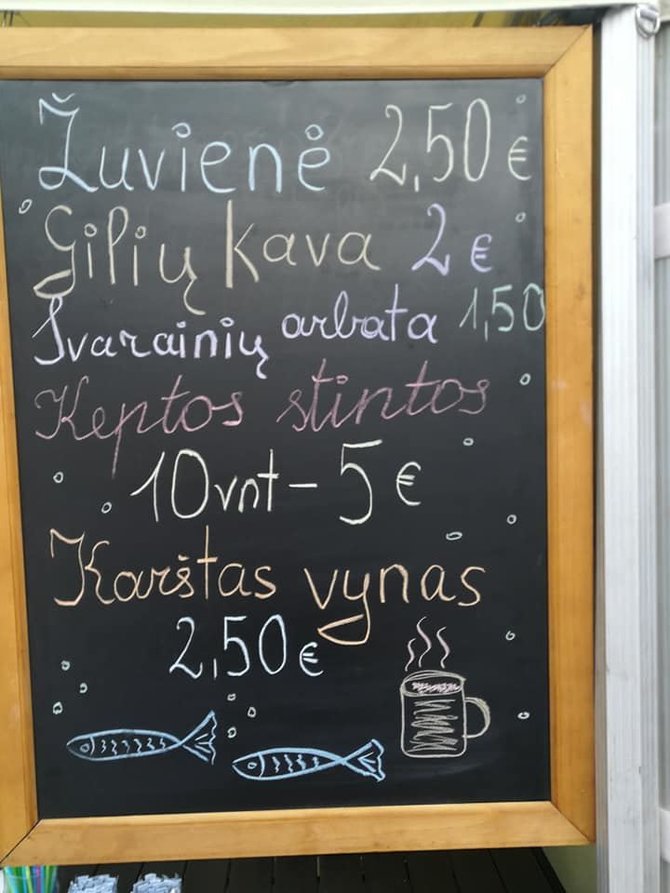 Žuvienė 2,50 €
Gilių kava 2 €
Svarainių arbata 1,50
Keptos stintos
10vnt – 5 €
Karštas vynas
2,50 €